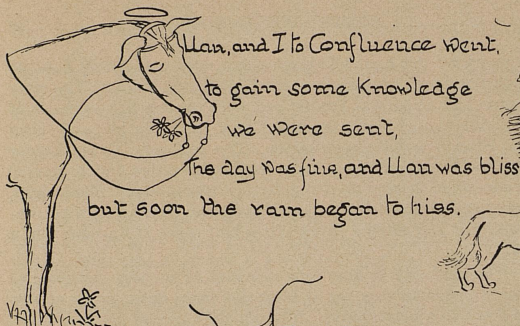 Llan, and I to Confluence went,
to gain some knowledge
we were sent,
The day was fine, and Llan was bliss
but soon the rain began to hiss.